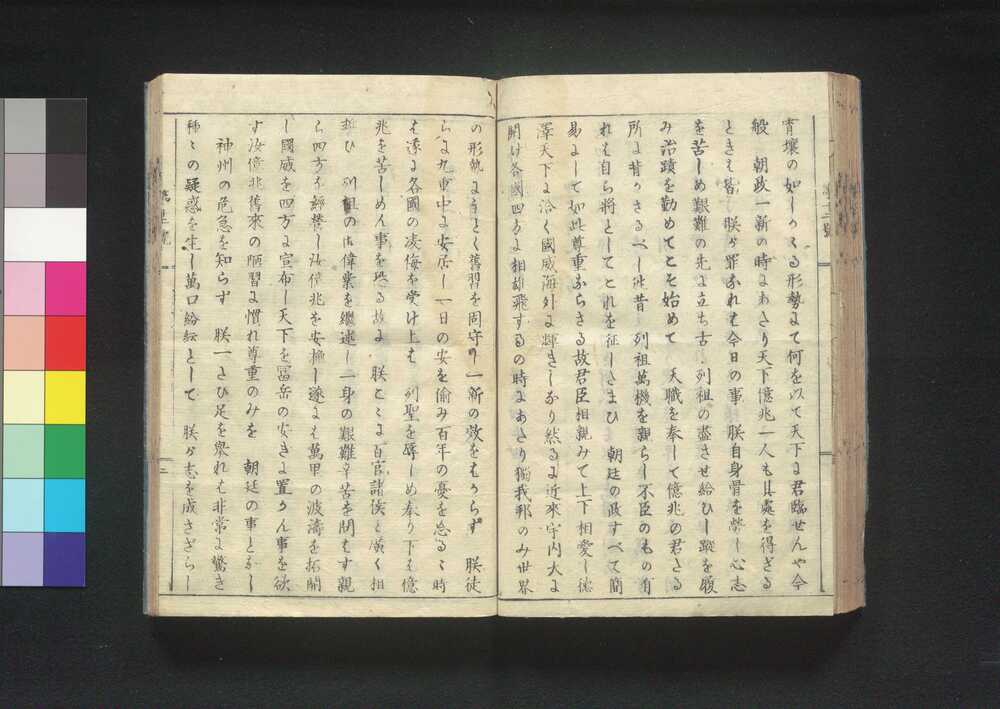 霄壤の如しかゝる形勢にて何を以て天下に君臨せんや今
般　朝政一新の時にあたり天下億兆一人も其處を得ざる
ときは皆　朕が罪なれは今日の事　朕自身骨を勞し心志
を苦しめ艱難の先に立ち古　列祖の盡させ給ひし蹤を履
み治蹟を勤めてこそ始めて　天職を奉して億兆の君たる
所に背かさるへし徃昔　列祖萬機を親らし不臣のもの有
れは自ら將としてこれを征したまひ　朝廷の政すべて簡
易にして如此尊重ならさる故君臣相親みて上下相愛し德
澤天下に洽く國威海外に輝きしなり然るに近來宇内大に
開け各國四方に相雄飛するの時にあたり獨我邦のみ世界
の形勢にうとく舊習を固守し一新の效をはからず　朕徒
らに九重中に安居し一日の安を偷み百年の憂を忘るゝ時
は遂に各國の凌侮を受け上は　列聖を辱しめ奉り下は億
兆を苦しめん事を恐る故に　朕こゝに百官諸侯と廣く相
誓ひ　列祖の御偉業を繼述し一身の艱難辛苦を問はす親
ら四方を經營し汝億兆を安撫し遂には萬里の波濤を拓開
し國威を四方に宣布し天下を冨岳の安きに置かん事を欲
す汝億兆舊來の陋習に慣れ尊重のみを　朝廷の事となし
　神州の危急を知らず　朕一たひ足を舉れは非常に驚き
種ゝの疑惑を生し萬口紛紜として　朕が志を成さざらし